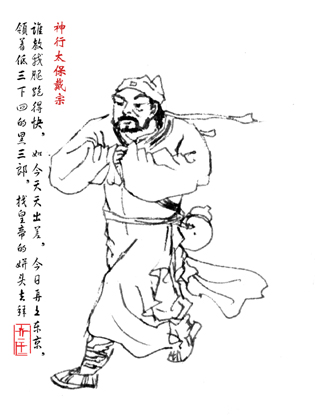 神行太保戴宗
谁教我腿跑得快，如今天天出差，今日再上东京，
领着低三下四的黑三郎，找皇帝的姘头去辩